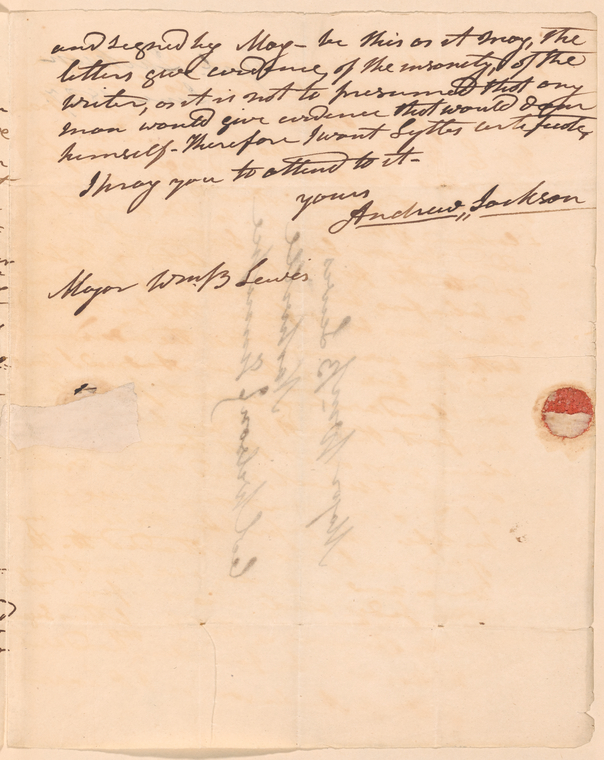 and signed by May - be this as it may, the
letters give evidence, of the insanity, of the
writer, as it is not to presumed that any
man would give evidence that would
himself - Therefore I want Lyttes certificate,
I pray you to attend to it -
yours
Andrew Jackson
Major Wm. B Lewis